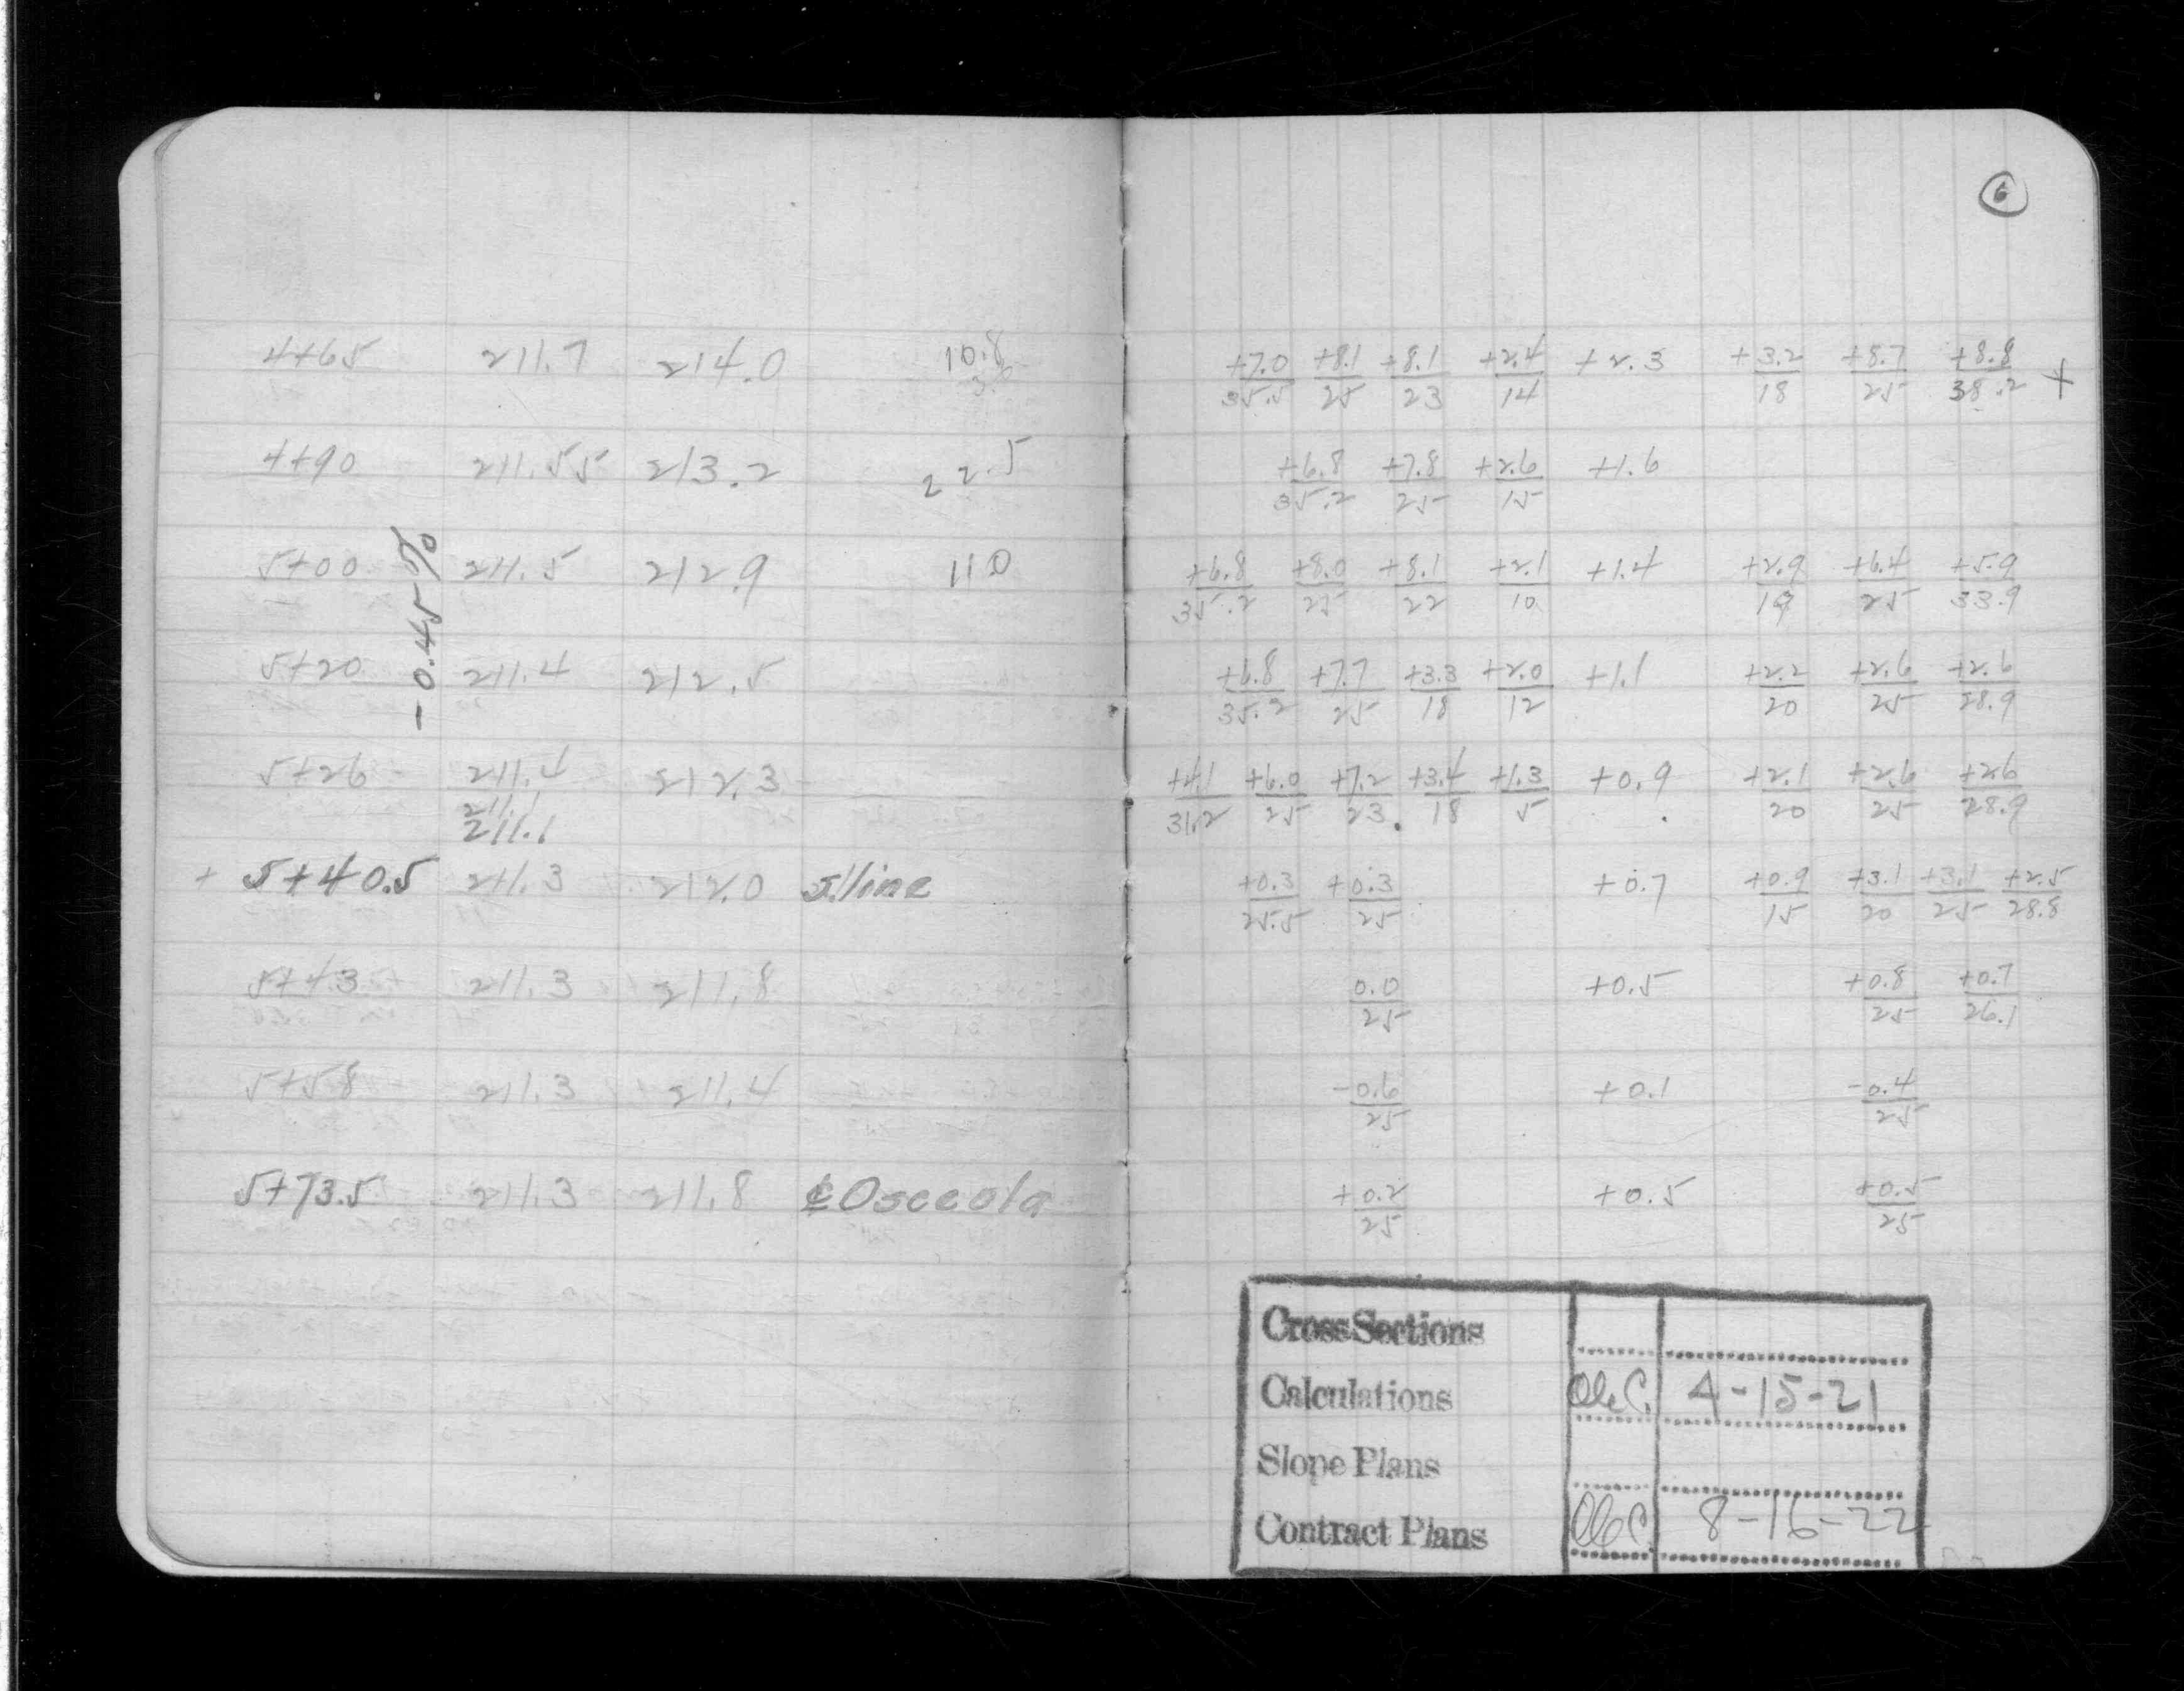 6
4+65 211.7 214.0 10.8 +7.0/35.5 +8.1/25 +8.1/23 +2.4/14 +2.3 +3.2/18 +8.7/25 +8.8/38.2 +
4+90 211.55 213.2 22.5 +6.8/35.2 +7.8/25 +2.6/15 +1.6
5+00 211.5 212.9 110 +6.8/35.2 +8.0/25 +8.1/22 +2.1/10 +1.4 +2.9/19 +6.4/25 +5.9/33.9
-0.45%
5+20 211.4 212.5 +6.8/35.2 +7.7/25 +3.3/18 +2.0/12 +1.1 +2.2/20 +2.6/25 +2.6/28.9
5+26 211.4 212.3 +4.1/31.2 +6.0/25 +7.2/23 +3.4/18 +1.3/5 +0.9 +2.1/20 +2.6/25 +2.6/28.9
211.1
211.1
+ 5+40.5 211.3 212.0 S.line +0.3/25.5 +0.3/25 +0.7 +0.9/15 +3.1/20 +3.1/25 +2.5/28.8
5+43 211.3 211.8 0.0/25 +0.5 +0.8/25 +0.7/26.1
5+58 211.3 211.4 -0.6/25 +0.1 -0.4/25
5+73.5 211.3 211.8 ₵ Osceola +0.2/25 +0.5 +0.5/25
Cross Sections
Calculations 4-15-21
Slope Plans
Contract Plans 8-16-22